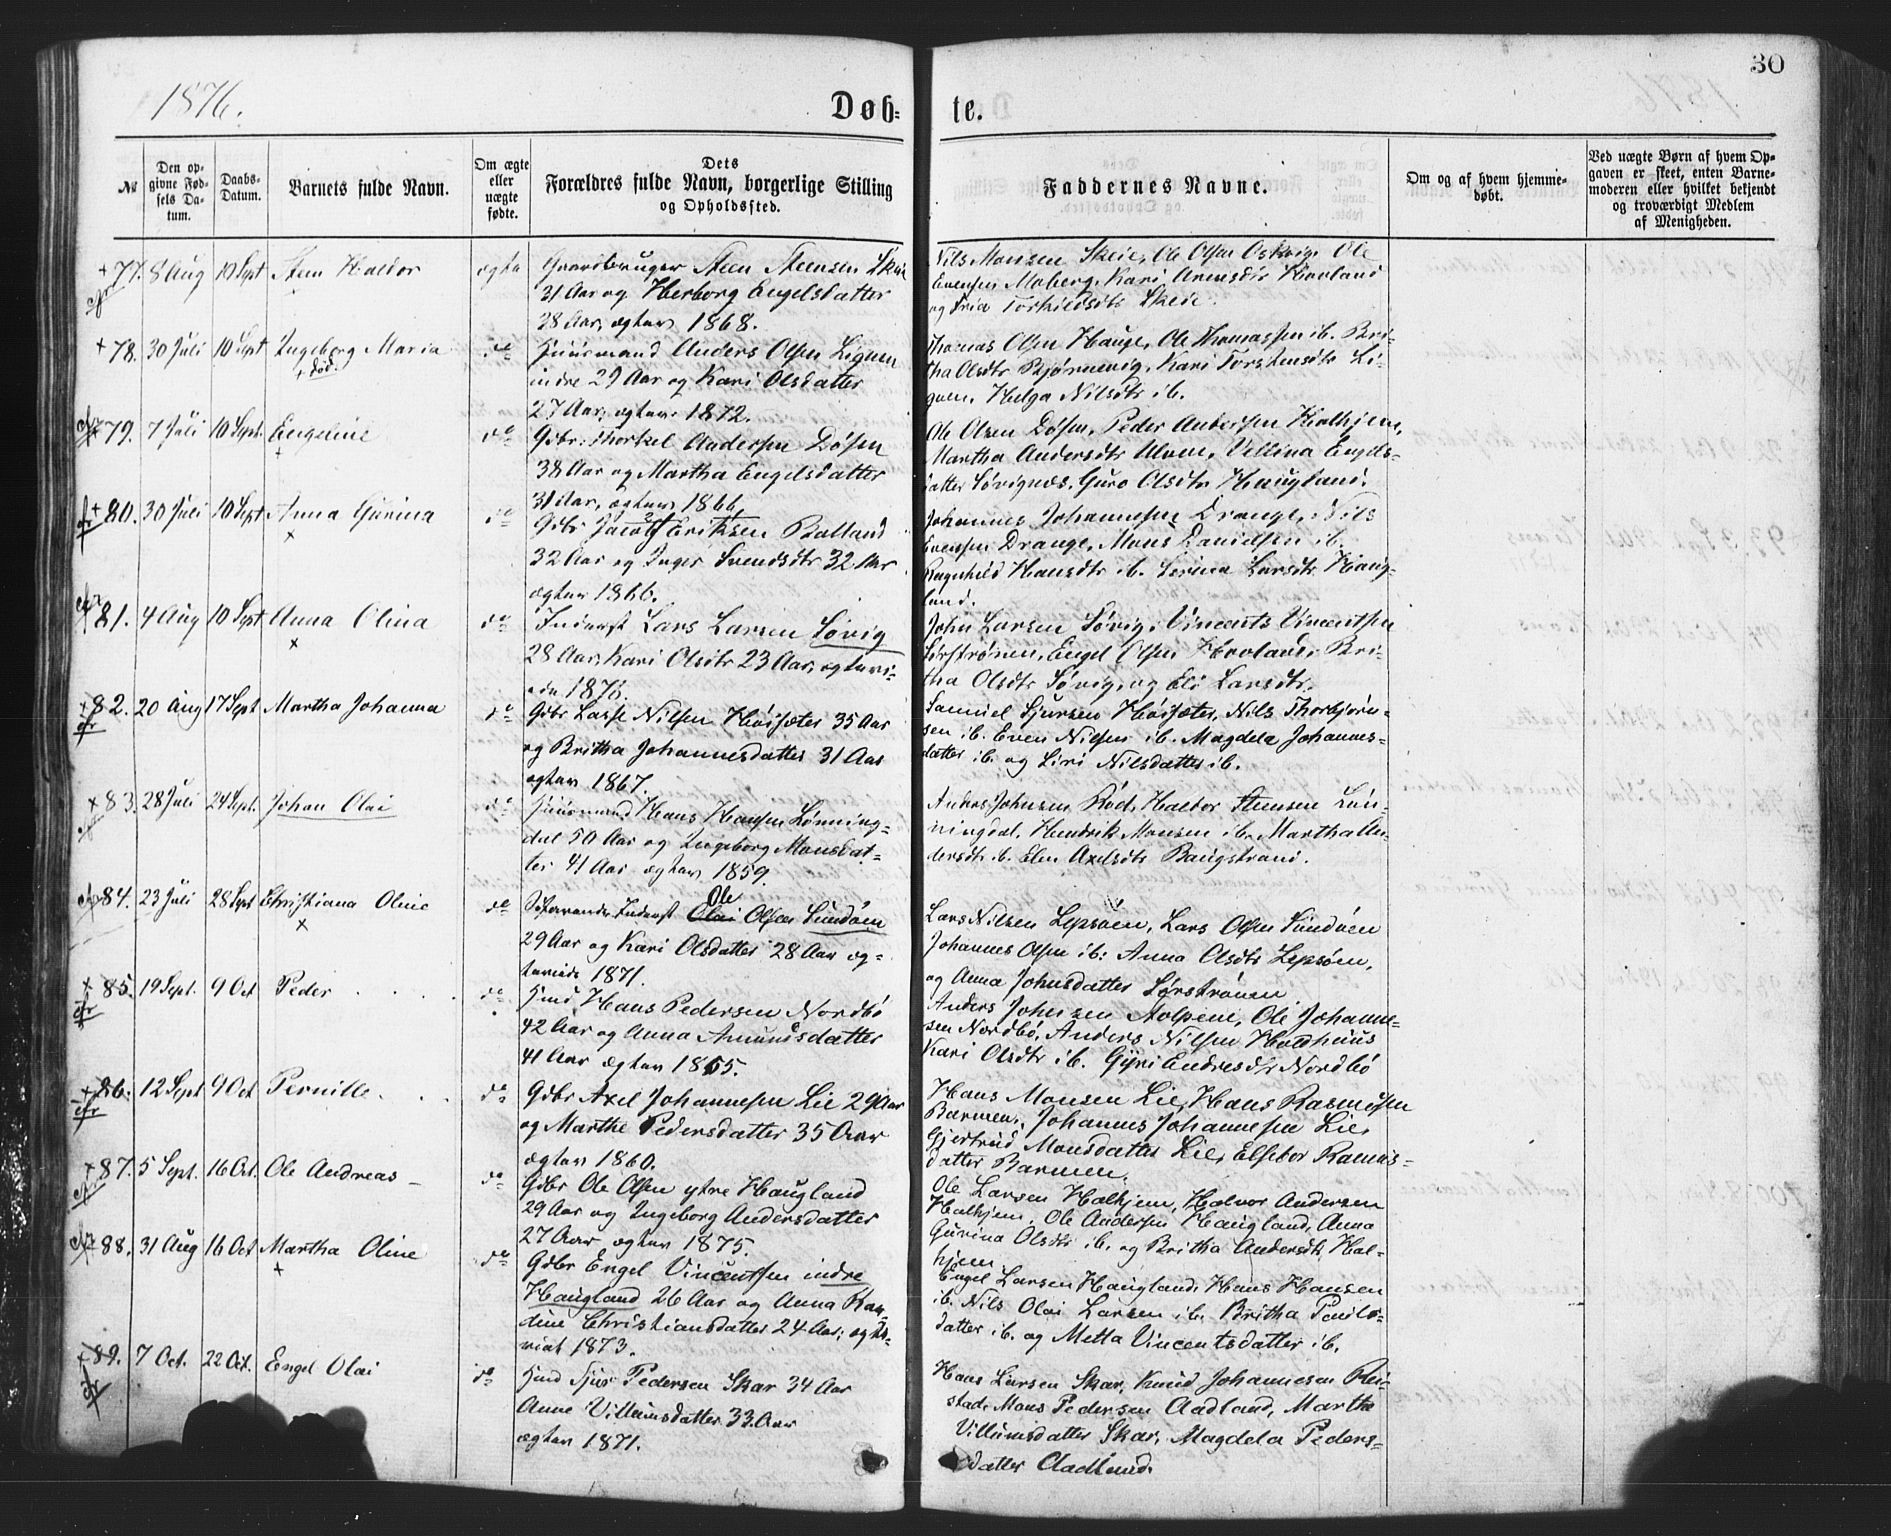 1876.
Døb=
te.
30
№
Den op-
givne Fød-
sels Da-
tum.
Daabs-
Datum.
Barnets fulde Navn.
Om ægte
eller
uægte
fødte.
Dets
Forældres fulde Navn, borgerlige Stilling
og Opholdssted.
Faddernes Navne.
Om og af hvem hjemme-
døbt.
Ved uægte Børn af hvem Op-
gaven er skeet, enten Barne-
moderen eller hvilket bekjendt
og troværdigt Medlem
af Menigheden.
77. 8 Aug 10 Sept Steen Haldor ægte Gaardbruger Steen Steensen Skeie
31 Aar og Herborg Engelsdatter
28 Aar, ægtev 1868.
Nils Monsen Skeie, Ole Olsen Ole
Evensen Moberg, Kari Arnesdtr Hovland
og Torkildsdtr Skeie.
78. 30 Juli 10 Sept Ingeborg Maria do Huusmand Anders Olsen Liguen
+ død.
indre 29 Aar og Kari Olsdatter
27 Aar, ægtev. 1872.
Thomas Olsen Hauge, Ole Thomassen ib. Bri-
tha Olsdtr Bjørnevig, Kari Torstensdtr Li-
guen, Helga Nilsdtr ib.
79. 7 Juli 10 Sept. Engeline do Gdbr: Thorkel Andersen Døsen
38 Aar og Martha Engelsdatter
31 Aar, ægtev 1866,
Ole Olsen Døsen, Peder Andersen Halhjem,
Martha Andersdtr Ulven, Vellina Engels-
datter Søvignæs, Guro Olsdtr Haugland.
80. 30 Juli 10 Sept Anna Gurina do Gdbr Jacob Eriksen Balland
32 Aar og Inger Svendsdtr 32 Aar
ægtev 1866.
Johannes Johannesen Drange, Nils
Evensen Drange, Mons Danielsen ib.
Ragnhild Hansdtr ib. Serina Larsdtr Haug-
land.
81. 4 Aug 10 Sept Anna Olina do Inderst Lars Larsen Søvig
28 Aar, Kari Olsdtr 23 Aar, ægtevi-
ede 1876.
John Larsen Søvig, Vincents Vincentsen
Sørstrønen, Engel Olsen Hovland, Bri-
tha Olsdtr Søvig, og Eli Larsdtr.
82. 20 Aug 17 Sept Martha Johanna do Gdbr Lasse Nilsen Høisæter 35 Aar
og Britha Johannesdatter 31 Aar
ægtev 1867.
Samuel Sjursen Høisæter, Nils Thorbjørn-
sen ib. Even Nilsen ib. Magdela Johannes-
datter ib. og Siri Nilsdatter ib.
83. 28 Juli 24 Sept. Johan Olai do Huusmand Hans Hansen Lønning-
dal 50 Aar og Ingeborg Monsdat-
ter 41 Aar ægtev 1859.
Anders Johnsen Rød, Haldor Steensen Løn-
ningdal, Hendrik Monsen ib. Martha An-
dersdtr ib. Elen Axelsdtr Baugstrand.
84. 23 Juli 28 Sept Christiana Oline do Inderst Ole Olai Olsen Sundøen
29 Aar og Kari Olsdatter 28 Aar æg-
teviede 1871.
Lars Nilsen Lepsøen, Lars Olsen Sundøen
Johannes Olsen ib: Anna Olsdtr Lepsøen,
og Anna Johnsdatter Sørstrønen
85. 19 Sept. 9 Oct Peder . . . do Hmd Hans Pedersen Nordbø
42 Aar og Anna Amundsdatter
41 Aar ægtev 1865.
Anders Johnsen Ole Johanne-
sen Nordbø, Anders Nilsen Holdhuus
Kari Olsdtr ib. Gyri Endresdtr Nordbø
86. 12 Sept 9 Oct Pernille. . . do Gdbr Axel Johannesen Lie 29 Aar
og Marthe Pedersdatter 35 Aar
ægtev 1860.
Hans Monsen Lie, Hans Rasmussen
Barmen, Johannes Johannesen Lie,
Gjertrud Monsdatter Lie, Elsebor Rasmus-
datter Barmen.
87. 5 Sept. 16 Oct. Ole Andreas - do Gdbr Ole Olsen ytre Haugland
29 Aar og Ingeborg Andersdatter
27 Aar ægtev 1875.
Ole Larsen Halhjem, Halvor Andersen
Halhjem, Ole Andersen Haugland, Anna
Gurina Olsdtr ib. og Britha Andersdtr Hal-
hjem
88. 31 Aug 16 Oct Martha Oline do Gdbr Engel Vincentsen indre
Haugland 26 Aar og Anna Ran-
dine Christiansdatter 24 Aar, ægte-
viet 1873.
Engel Larsen Haugland, Hans Hansen
ib. Nils Olai Larsen ib. Britha Pouls-
datter ib. og Metta Vincentsdatter ib.
89. 7 Oct. 22 Oct. Engel Olai do Hmd Sjur Pedersen Skar 34 Aar
Anne Villumsdatter 33 Aar
ægtev 1871.
Hans Larsen Skar, Knud Johannesen Rei-
stad, Mons Pedersen Aadland, Martha
Villumsdatter Skar, Magdela Peders-
datter Aadland.